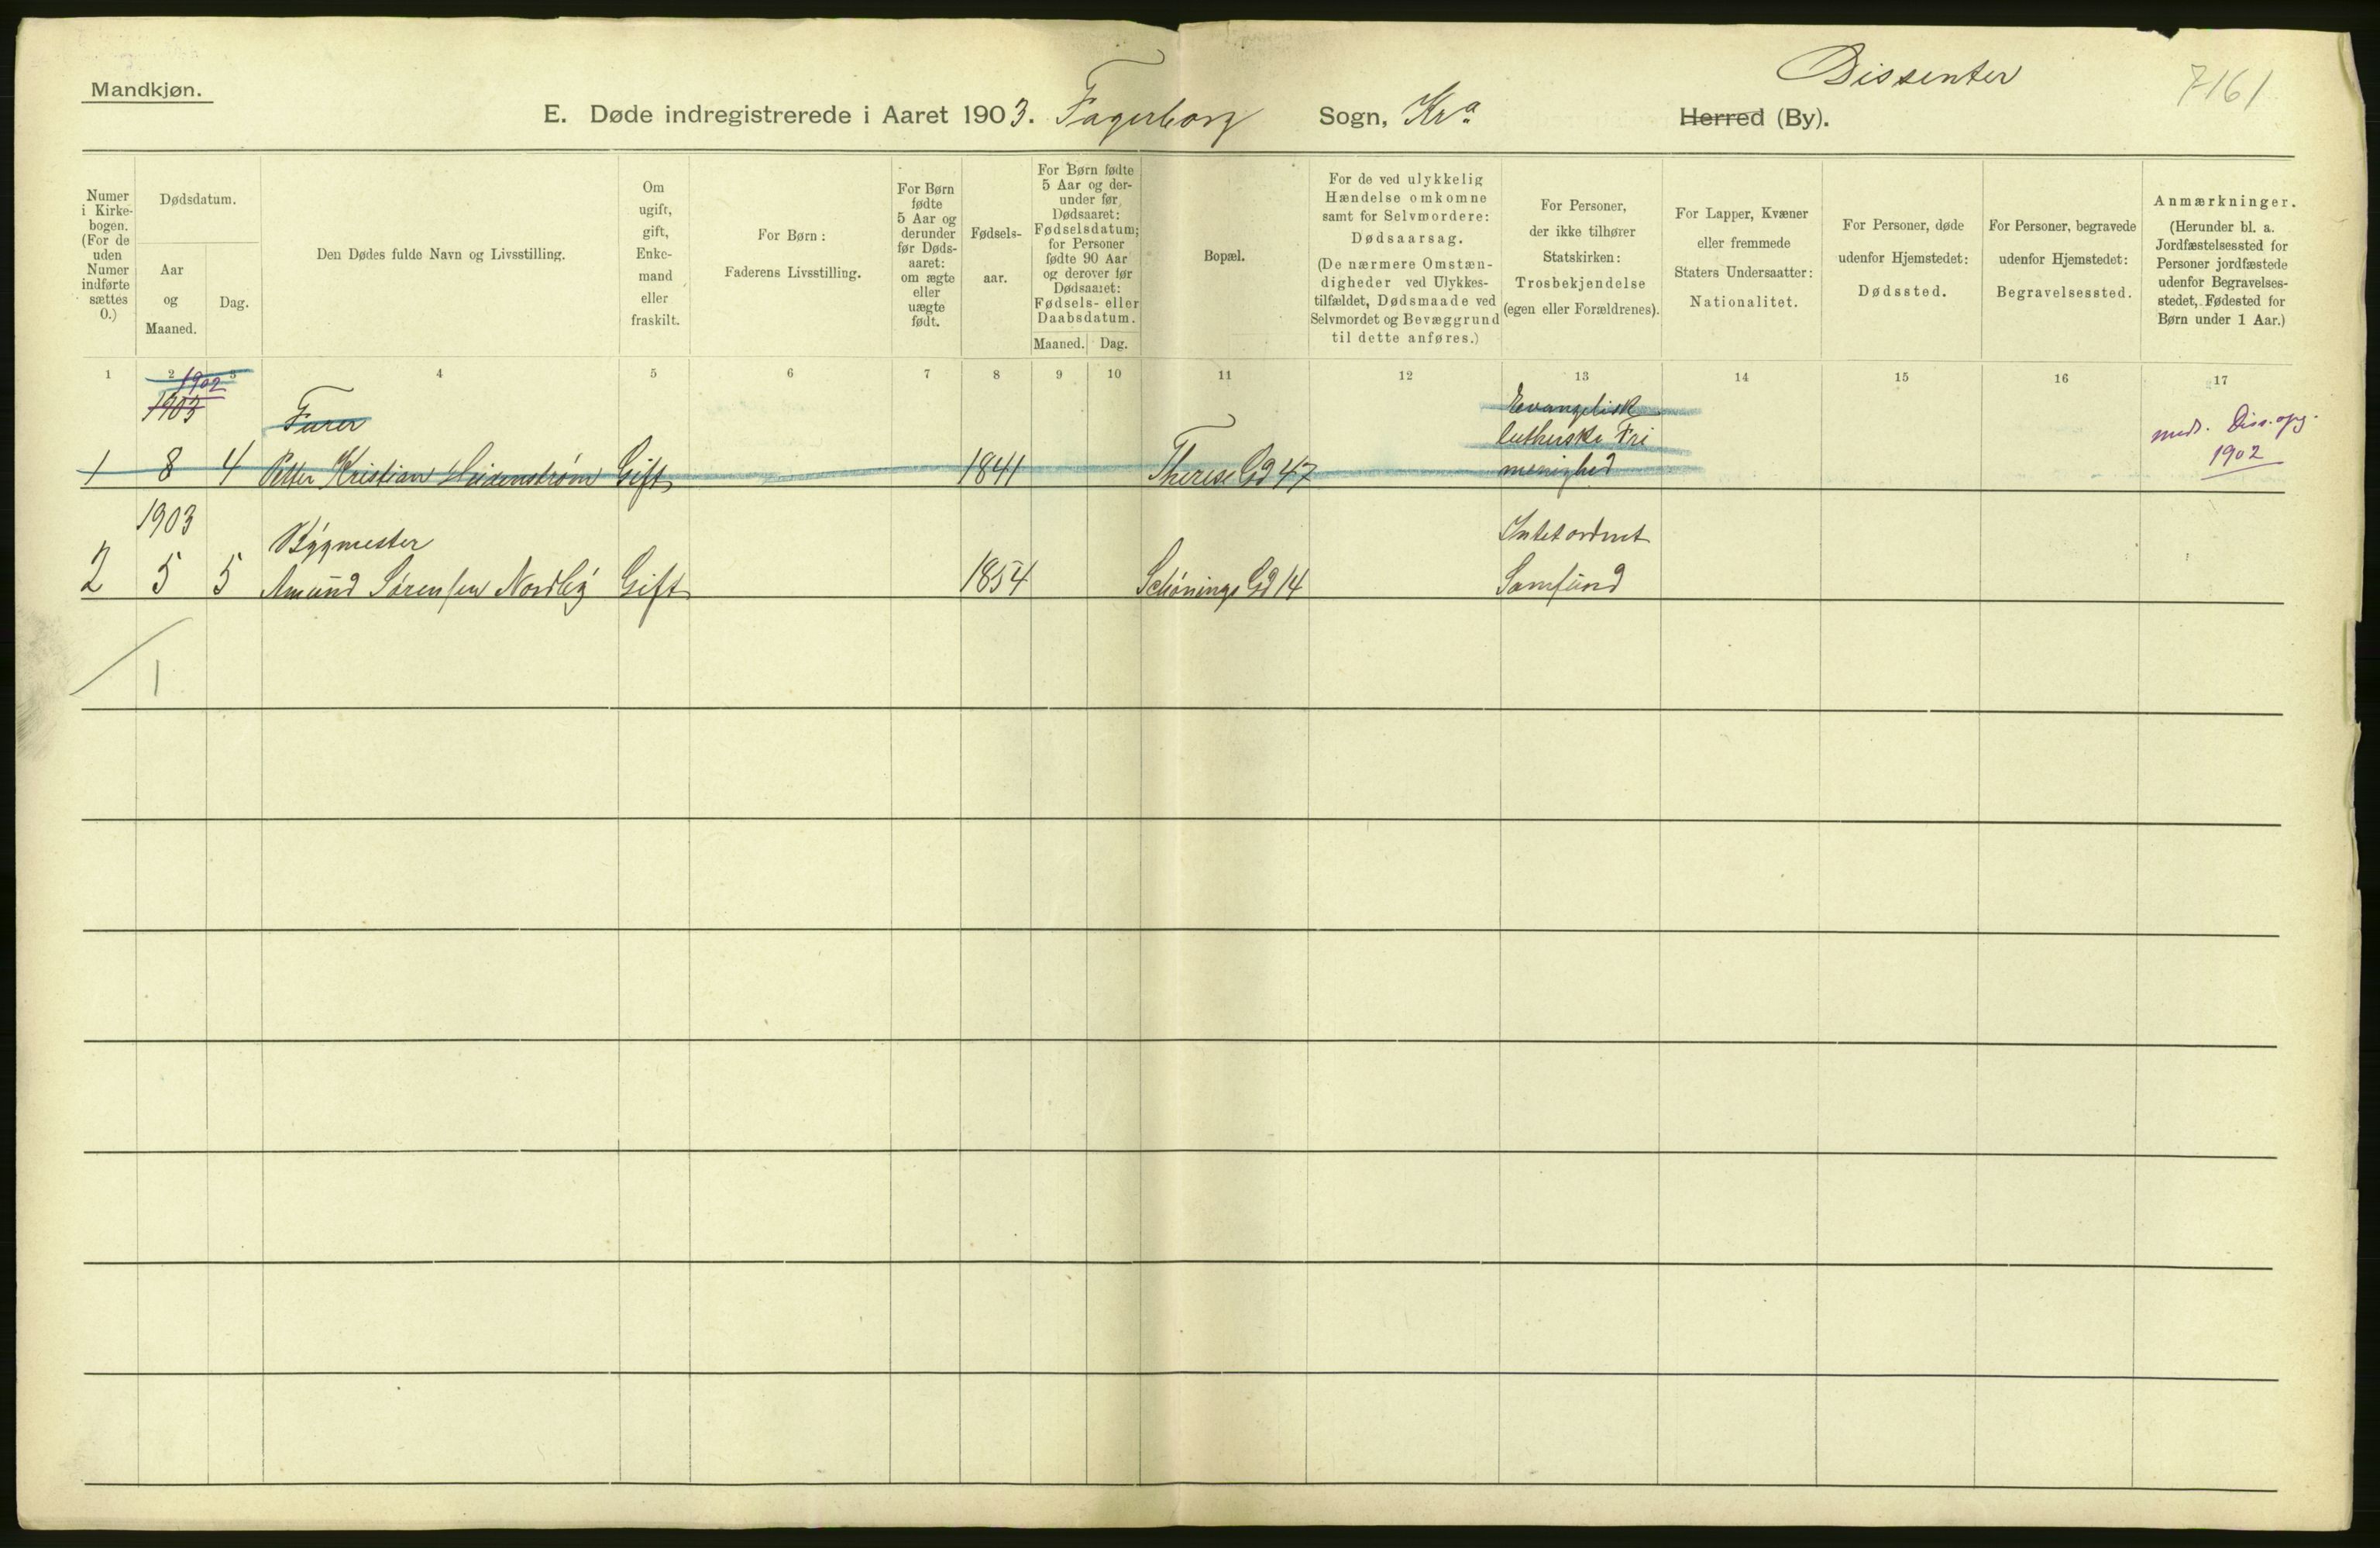 Dissenter
7161
Mandkjøn.
E. Døde indregistrerede i Aaret 1903. Fagerborg Sogn, Kra Herred (By).
Numer i Kirke-bogen. (For de uden Numer indførte sættes 0.)
Dødsdatum.
Aar og Maaned.
Dag.
Den Dødes fulde Navn og Livsstilling.
Om ugift, gift, Enke-mand eller fraskilt.
For Børn: Faderens Livsstilling.
For Børn fødte 5 Aar og derunder før Døds-aaret: om ægte eller uægte født.
Fødsels-aar.
For Børn fødte 5 Aar og der-under før Dødsaaret: Fødselsdatum; for Personer fødte 90 Aar og derover før Dødsaaret: Fødsels- eller Daabsdatum.
Maaned. Dag.
Bopæl.
For de ved ulykkelig Hændelse omkomne samt for Selvmordere: Dødsaarsag. (De nærmere Omstæn-digheder ved Ulykkes-tilfældet, Dødsmaade ved Selvmordet og Bevæggrund til dette anføres.)
For Personer, der ikke tilhører Statskirken: Trosbekjendelse (egen eller Forældrenes).
For Lapper, Kvæner eller fremmede Staters Undersaatter: Nationalitet.
For Personer, døde udenfor Hjemstedet: Dødssted.
For Personer, begravede udenfor Hjemstedet: Begravelsessted.
Anmærkninger. (Herunder bl. a. Jordfæstelsessted for Personer jordfæstede udenfor Begravelses-stedet, Fødested for Børn under 1 Aar.)
1 2 3 4 5 6 7 8 9 10 11 12 13 14 15 16 17
1902
1903
Furer
Evangelisk
lutherske Fri
menighed
1 8 4 Petter Kristian Gift 1841 Therese Gd 47
medt. Diss. opg.
1902
1903
Bygmester
Intet ordnet
2 5 5 Amund Sørensen Nordby Gift 1854 Schønings Gd 14 Samfund
1